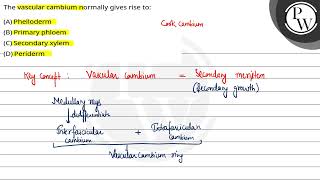 The vascular cambium normally gives rise to:
(A) Phelloderm
(B) Primary phloem
(C) Secondary xylem
(D) Periderm
Cork cambium
Key Concept : Vascular cambium = Secondary meristem
(Secondary growth)
Medullary rays
↓ differentiate
Interfascicular cambium + Intrafascicular cambium
Vascular cambium ring
PW